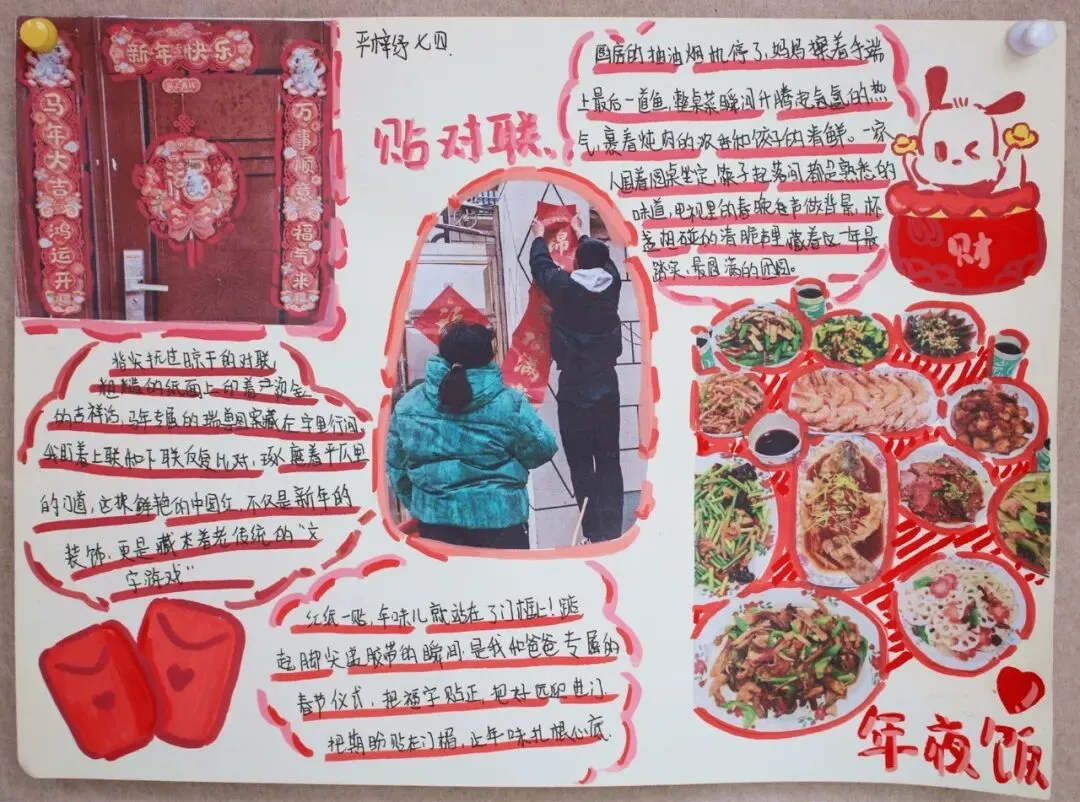 严梓纾 七四
新年快乐
马年大吉鸿运开
万事顺意福气来
福
贴对联
厨房的抽油烟机停了,妈妈擦着手端
上最后一道鱼,整桌菜瞬间升腾起氤氲的热
气,裹着炖肉的浓香和饺子的清鲜。一家
人围着圆桌坐定,筷子起落间都是熟悉的
味道,电视里的春晚歌声做背景,杯
盏相碰的清脆声里,藏着这一年最
踏实、最圆满的团圆。
财
指尖抚过晾干的对联
粗糙的纸面上印着烫金
的吉祥话,马年专属的瑞兽图案藏在字里行间,
我盯着上联和下联反复比对,琢磨着平仄里
的门道,这抹鲜艳的中国红,不仅是新年的
装饰,更是藏着老传统的“文
字游戏”
福
红纸一贴,年味儿就站在了门框上!踮
起脚尖递胶带的瞬间,是我和爸爸专属的
春节仪式,把福字贴正,把好运迎进门
把期盼贴在门楣,让年味扎根心底.
年夜饭